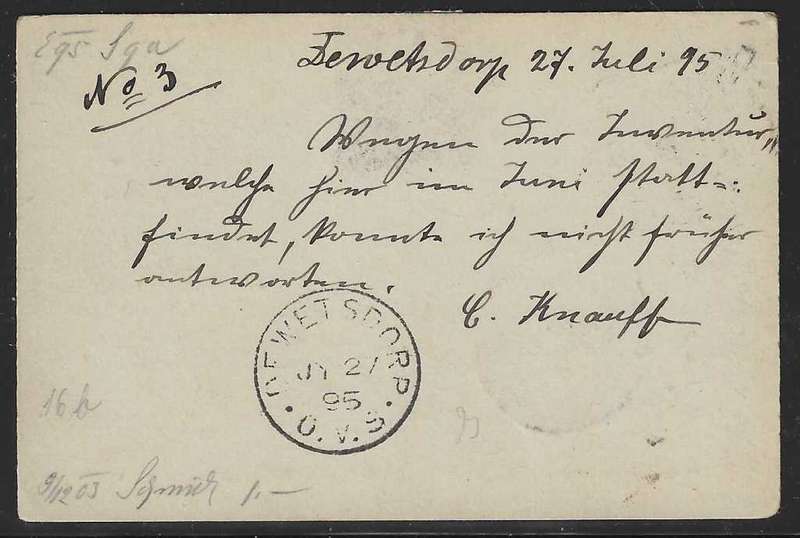 No 3
Dewetsdorp 27. Juli 95
Wegen der Inventur,
welche hier im Juni statt-
findet, konnte ich nicht früher
antworten.
C. Knauff
DEWETSDORP
JY 27
95
O.V.S
16 b
9/12 03 1.—